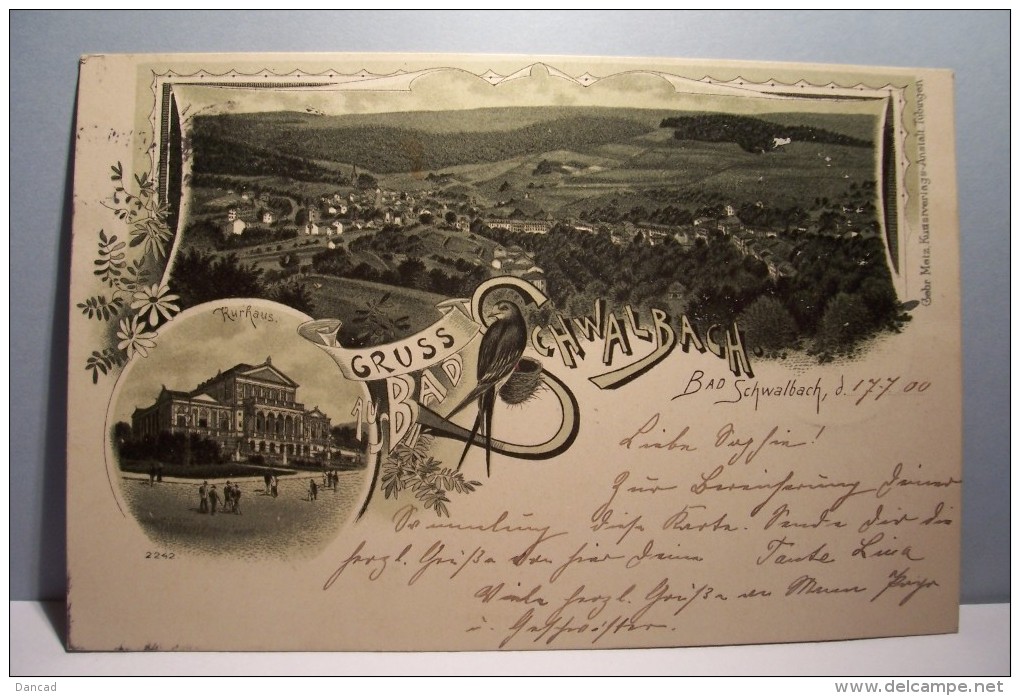 Gebr. Metz, Kunstverlags-Anstalt Tübingen
Kurhaus.
GRUSS
AUS BAD SCHWALBACH.
BAD Schwalbach, d. 17.7.00
Liebe Sophie!
Zur Bereicherung Deiner
Sammlung diese Karte. Sende Dir die
herzl. Grüße von hier Deine Tante Lina
Viele herzl. Grüße an Mama
u. Geschwister.
2242
Dancad
delcampe.net